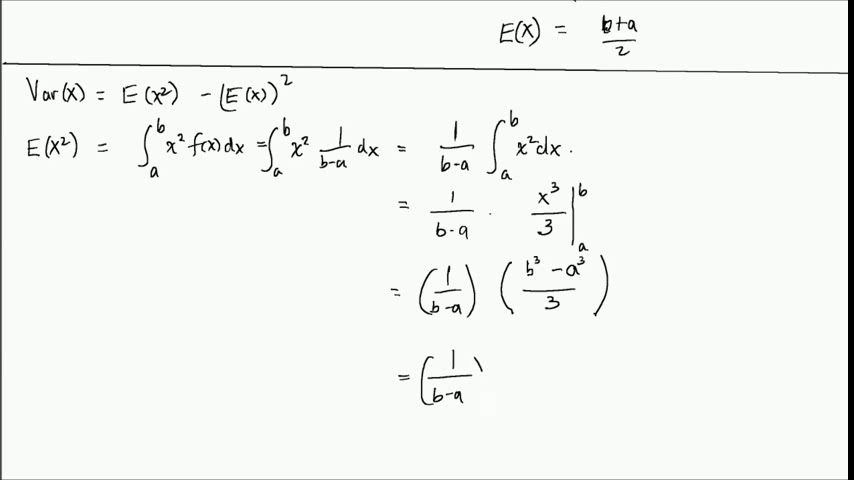 E(X) = b+a/2
Var(X) = E(X²) - (E(X))²
E(X²) = ∫_a^b x² f(x)dx = ∫_a^b x² 1/(b-a) dx = 1/(b-a) ∫_a^b x² dx.
= 1/(b-a) · x³/3 |_a^b
= (1/(b-a)) ((b³ - a³)/3)
= (1/(b-a))